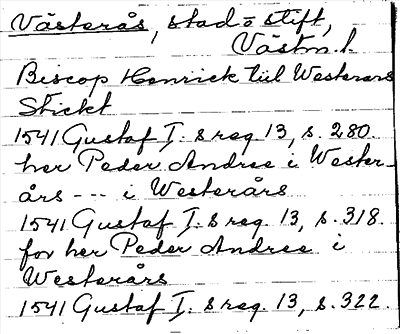 Västerås, stad o stift,
Västm. l.
Biscop Henrick till Westerars
Stickt
1541 Gustaf I:s reg 13, s. 280.
her Peder Andree i Wester-
års --- i Westerårs
1541 Gustaf I:s reg 13, s. 318.
for her Peder Andree i
Westerårs
1541 Gustaf I:s reg. 13, s. 322.